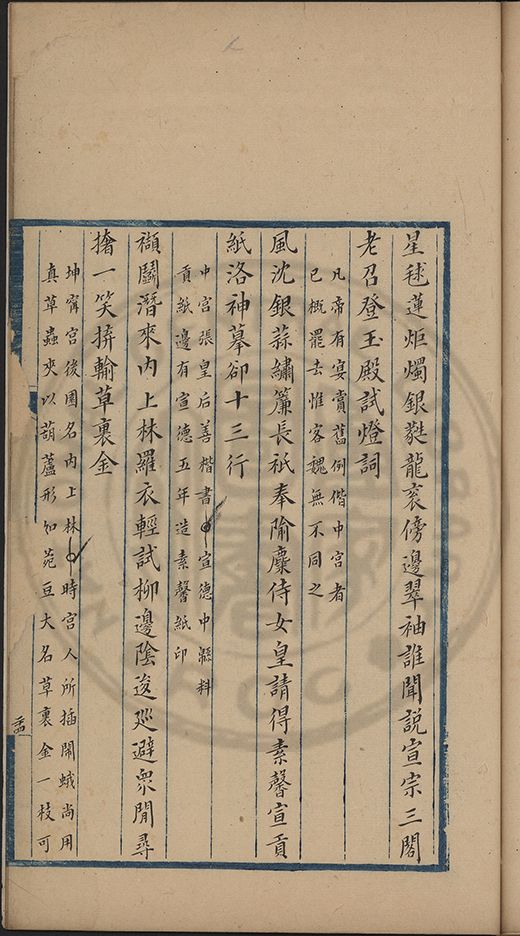 星毬蓮炬燭銀㲯龍衮傍邊翠袖誰聞説宣宗三閣
老召登玉殿試燈詞
凡帝有宴賞舊例偕中宮者
已概罷去惟客魏無不同之
風沈銀蒜繡簾長祇奉隃麋侍女皇請得素馨宣貢
紙洛神摹卻十三行
中宮張皇后善楷書宣德中鷉料
貢紙邊有宣德五年造素馨紙印
襭鬬潛來內上林羅衣輕試柳邊陰逡廵避衆閒尋
擔一笑揜輸草裏金
坤寗宮後園名內上林時宮人所插鬧蛾尚用
真草蟲夾以葫蘆形如菀豆大名草裏金一枝可